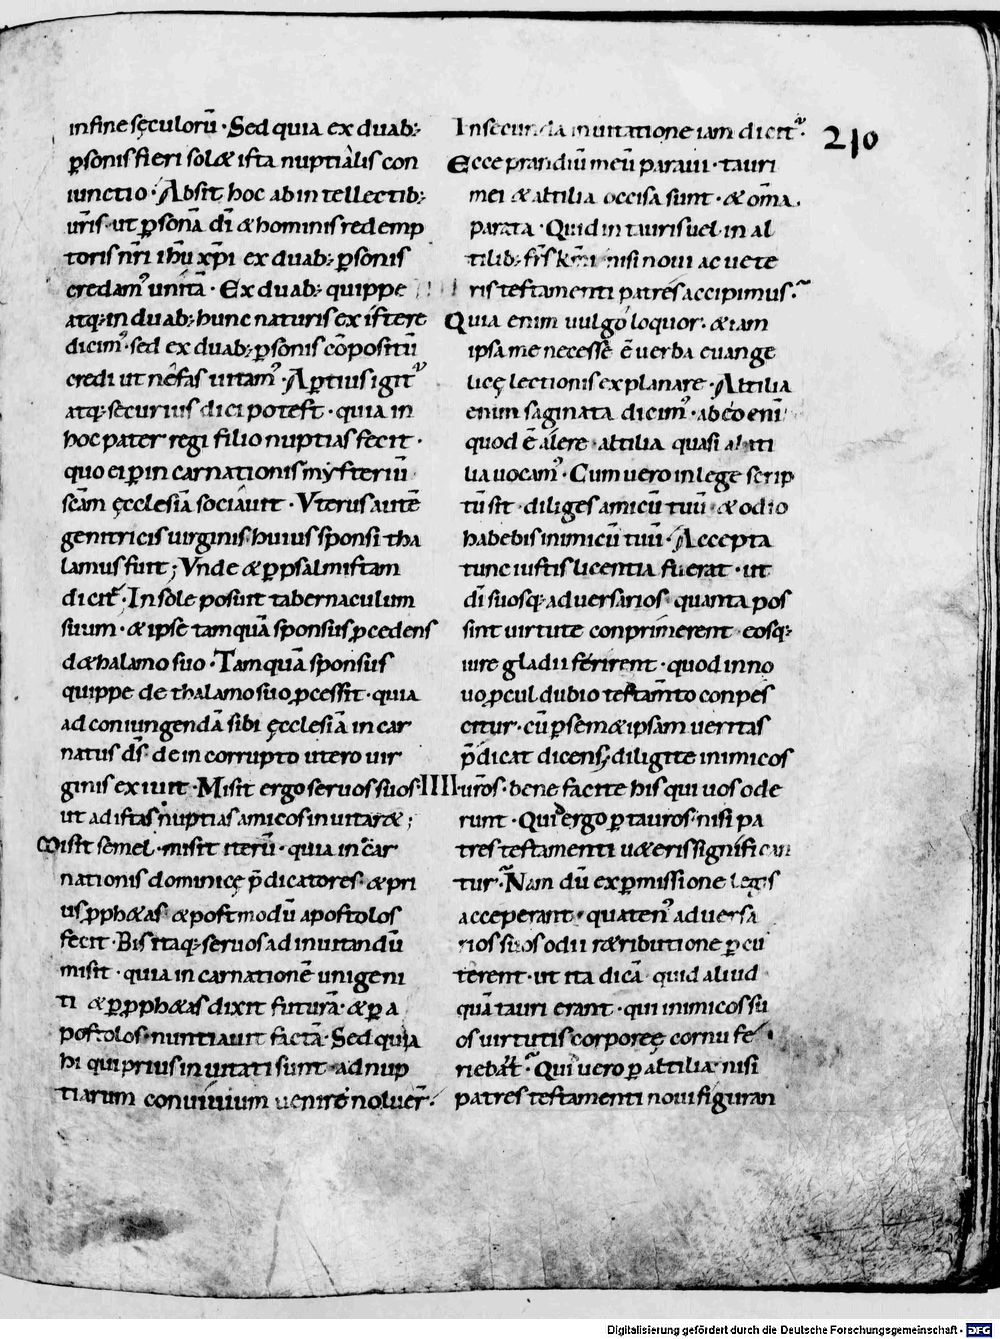 infine sęculorū · Sed quia ex duab;
ꝑsonis fieri sol& ista nuptialis con
iunctio · Absit hoc ab intellectib;
ur̄is · ut ꝑsonā dī & hominis redemp
toris nr̄i ihū xp̄i ex duab; ꝑsonis
credam᾿ unitā · Ex duab; quippe
atq; in duab; hunc naturis existere
dicim᾿ · sed ex duab; ꝑsonis cōpositū
credi ut nefas uitam᾿ · Aꝑtius igit᾿
atq; securius dici potest · quia in
hoc pater regi filio nuptias fecit ·
quo ei ꝑ incarnationis mysteriū
scām ęcclesiā sociauit · Vterus autē
genitricis uirginis huius sponsi tha
lamus fuit ; Vnde & ꝑ psalmistam
dicit᾿ · In sole posuit tabernaculum
suum · & ipse tamquā sponsus ꝓcedens
de thalamo suo · Tamquā sponsus
quippe de thalamo suo ꝓcessit · quia
ad coniungendā sibi ęcclesiā incar
natus dī de incorrupto utero uir
ginis exiuit · Misit ergo seruos suos ·
ut ad istas nuptias amicos inuitar& ;
Misit semel · misit iterū · quia incar
nationis dominicę p̄dicatores · & pri
us ꝓph&as · & postmodū apostolos
fecit · Bis itaq; seruos ad inuitandū
misit · quia incarnationē unigeni
ti & ꝑ ꝓph&as dixit futurā · & ꝑ a
postolos nuntiauit factā · Sed quia
hi qui prius inuitati sunt · ad nup
tiarum conuiuium uenire noluer̄ ·
210
In secunda inuitatione iam dicit᾿ ·
Ecce prandiū meū paraui · tauri
mei & altilia occisa sunt · & om̄a
parata · Quid in tauris uel in al
tilib; fr̄s km̄i nisi noui ac uete
ris testamenti patres accipimus ·
Quia enim uulgo loquor · & iam
ipsa me necesse ē uerba euange
licę lectionis explanare · Altilia
enim saginata dicim᾿ · ab eo enī
quod ē alere · altilia quasi aliti
lia uocam᾿ · Cum uero in lege scrip
tū sit · diliges amicū tuū · & odio
habebis inimicū tuū · Accepta
tunc iustis licentia fuerat · ut
dī suosq; aduersarios · quanta pos
sint uirtute conprimerent · eosq;
iure gladii ferirent · quod in no
uo ꝓcul dubio testam̄to conpes
citur · cū ꝑ sem&ipsam ueritas
p̄dicat dicens ; diligite inimicos
IIII ur̄os · bene facite his qui uos ode
runt · Qui ergo ꝑ tauros · nisi pa
tres testamenti u&eris significan
tur · Nam dū ex ꝑmissione legis
acceperant · quaten᾿ aduersa
rios suos odii r&ributione ꝑcu
terent · ut ita dicā quid aliud
quā tauri erant · qui inimicos su
os uirtutis corporeę cornu fe
riebant · Qui uero ꝑ altilia · nisi
patres testamenti noui figuran
Digitalisierung gefördert durch die Deutsche Forschungsgemeinschaft - DFG